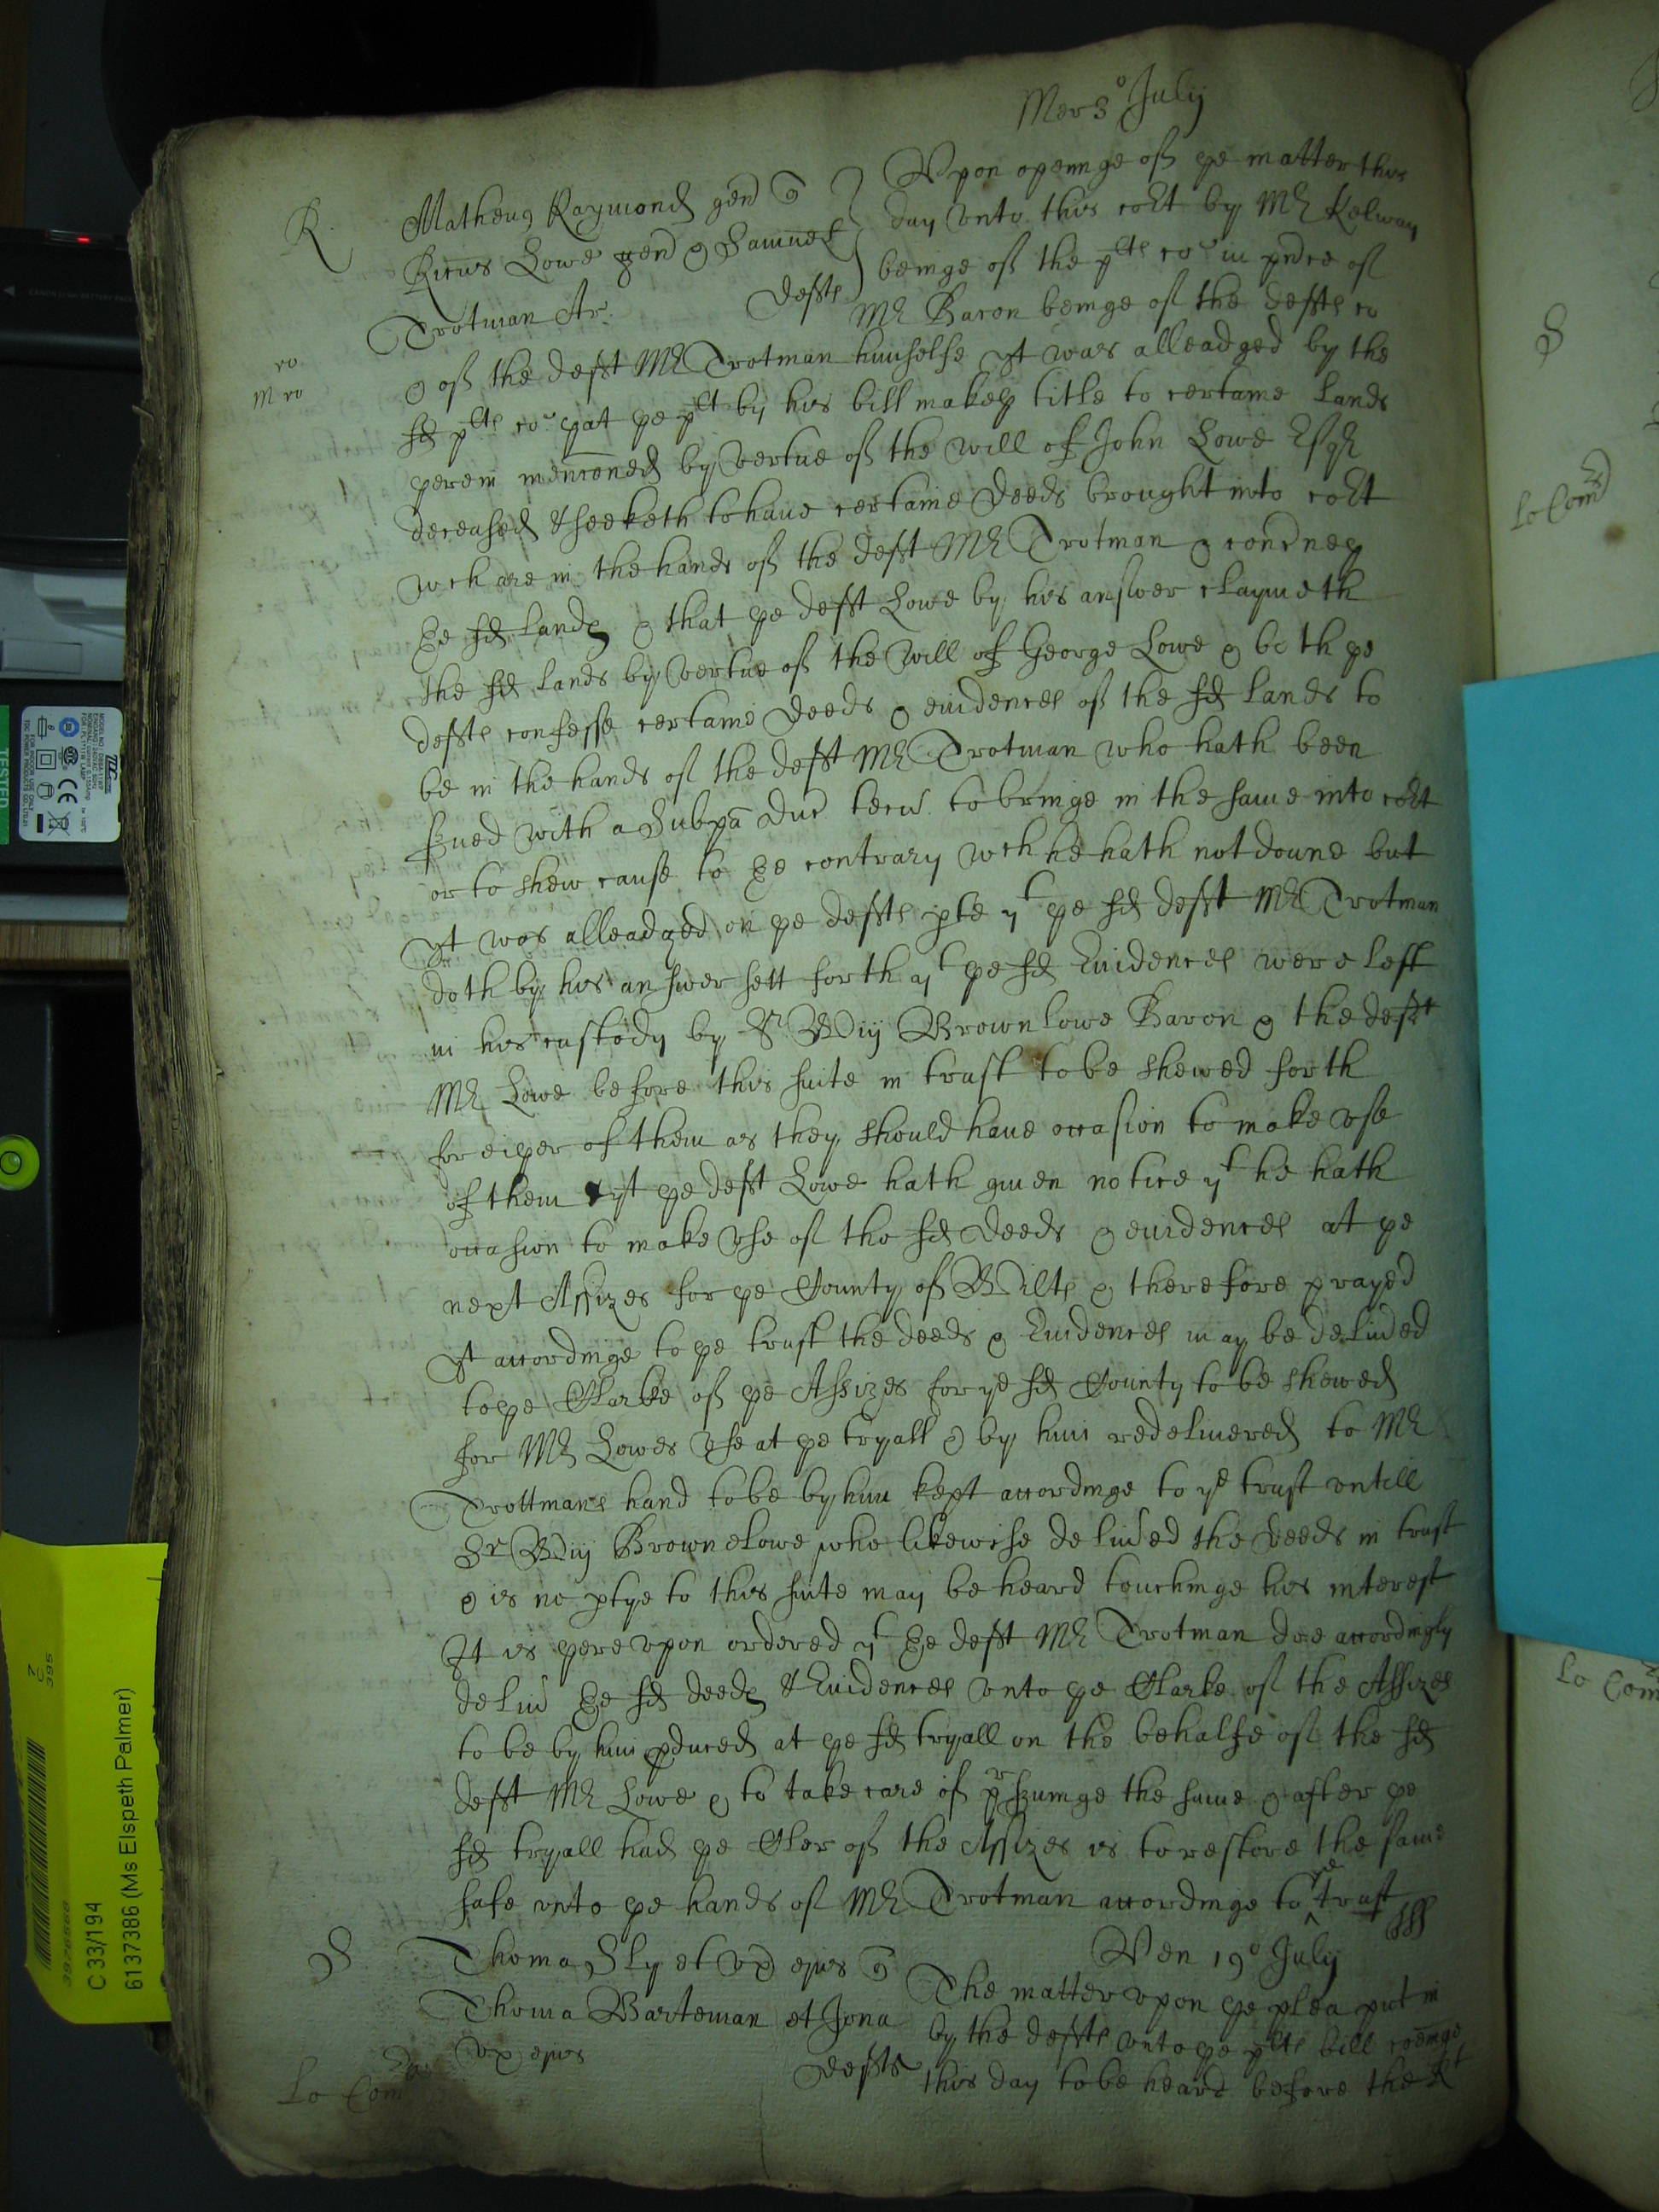 Mer 3o July
R
Matheus Raymond gen Q
Ricus Lowe gen & Samuel
Trotman Ar. Defftes
Vpon openinge of ye matter this
day vnto this cort by Mr Kelway
beinge of the pltes co in pnce of
Mr Baron beinge of the defftes co
ro
m ro
& of the defft Mr Trotman himselfe yt was alleadged by the
sd pltes co yat ye plt by his bill makes title to certaine Lands
yerein mencioned by vertue of the will of John Lowe Esqr
deceased & seeketh to haue certaine Deeds brought into cort
wch are in the hands of the defft Mr Trotman & concnes
ye sd Lands & that ye defft Lowe by his answer claymeth
the sd Lands by vertue of the Will of George Lowe & both ye
defftes confesse certaine Deeds & euidences of the sd Lands to
be in the hands of the defft Mr Trotman who hath been
srued with a Subpa Duc tecu to bringe in the same into cort
or to shew cause to ye contrary wch he hath not doune but
yt was alleadged on ye defftes pte yt ye sd defft Mr Trotman
doth by his answer sett forth yt ye sd Euidences were left
in his custody by Sr Wm Brownlowe Baron & the defft
Mr Lowe before this suite in trust to be shewed forth
for eiyer of them as they should haue occasion to make vse
of them yt ye defft Lowe hath giuen notice yt he hath
occasion to make vse of the sd Deeds & euidences at ye
next Assizes for ye County of Wiltes & therefore prayed
yt accordinge to ye trust the deeds & Euidences may be deliued
to ye Clarke of ye Assizes for ye sd County to be shewed
for Mr Lowes vse at ye tryall & by him redeliuered to Mr
Trottmans hand to be by him kept accordinge to ye trust vntill
Sr Wm Brownelowe who likewise deliued the deeds in trust
& is no ptye to this suite may be heard touchinge his interest
It is yerevpon ordered yt ye defft Mr Trotman doe accordingly
deliu ye sd deeds & Euidences vnto ye Clarke of the Assizes
to be by him pduced at ye sd tryall on the behalfe of the sd
defft Mr Lowe & to take care of prszuinge the same & after ye
sd tryall had ye Cler of the Assizes is to restore the same
safe vnto ye hands of Mr Trotman accordinge to ye trust
S
Thoma Sly et vx ejus Q
Thoma Barteman et Jona
vx ejus Deffts
Lo Com
Ven 19o July
The matter vpon ye plea put in
by the defftes vnto ye pltes bill coeminge
this day to be heard before the Rt
S
Lo Com
Lo Com
C 33/194
6137386 (Ms Elspeth Palmer)
TESTED